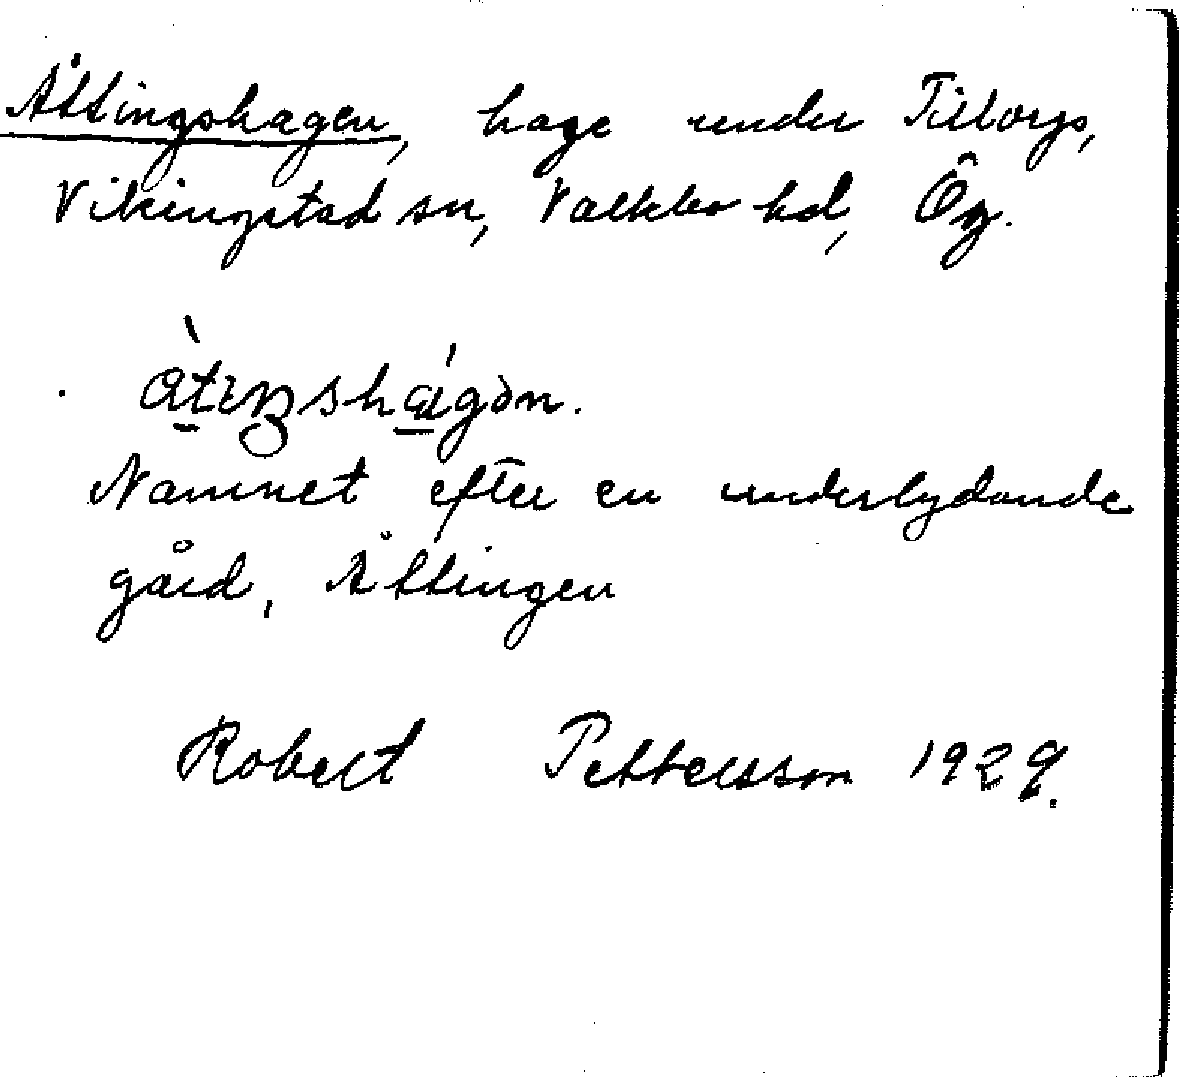 Åttingshagen, hage under Tillorp,
Vikingstad sn, Valkbo hd, Ög.
Namnet efter en underlydande
gård, Åttingen
Robert Pettersson 1929.